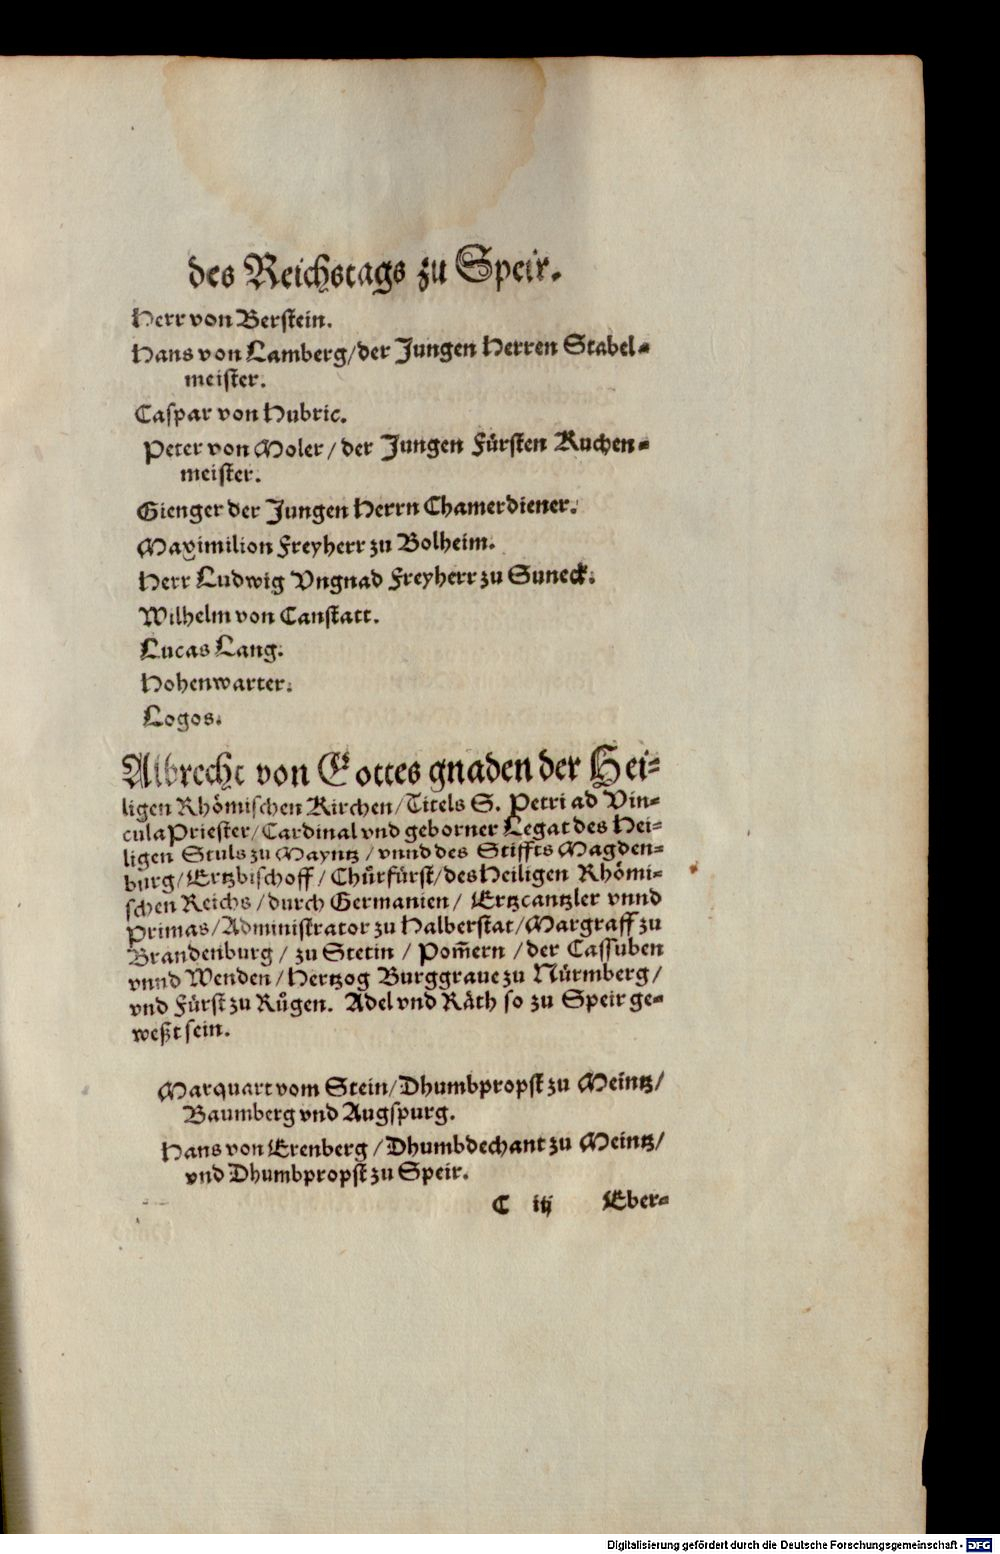 des Reichstags zu Speir.
Herr von Berstein.
Hans von Lamberg/der Jungen Herren Stabel⸗
meister.
Caspar von Hubric.
Peter von Moler / der Jungen Fürsten Kuchen⸗
meister.
Gienger der Jungen Herrn Chamerdiener.
Maximilion Freyherr zu Bolheim.
Herr Ludwig Vngnad Freyherr zu Suneck.
Wilhelm von Canstatt.
Lucas Lang.
Hohenwarter.
Logos.
Albrecht von Gottes gnaden der Hei⸗
ligen Rhömischen Kirchen/Titels S. Petri ad Vin⸗
cula Priester/Cardinal vnd geborner Legat des Hei⸗
ligen Stuls zu Mayntz / vnnd des Stiffts Magden⸗
burg/Ertzbischoff / Chürfürst/des Heiligen Rhömi⸗
schen Reichs / durch Germanien / Ertzcantzler vnnd
Primas/Administrator zu Halberstat/Margraff zu
Brandenburg / zu Stetin / Pom̃ern / der Cassuben
vnnd Wenden / Hertzog Burggraue zu Nürmberg /
vnd Fürst zu Růgen. Adel vnd Räth so zu Speir ge⸗
weßt sein.
Marquart vom Stein/Dhumbpropst zu Meintz/
Baumberg vnd Augspurg.
Hans von Erenberg / Dhumbdechant zu Meintz/
vnd Dhumbpropst zu Speir.
C iij Eber⸗
Digitalisierung gefördert durch die Deutsche Forschungsgemeinschaft - DFG